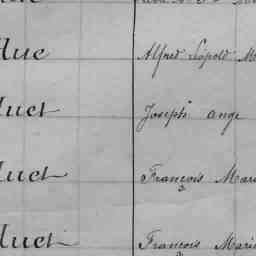 Hue Alfred Léopold
Huet Joseph ange
Huet François Mari
Huet François Mari